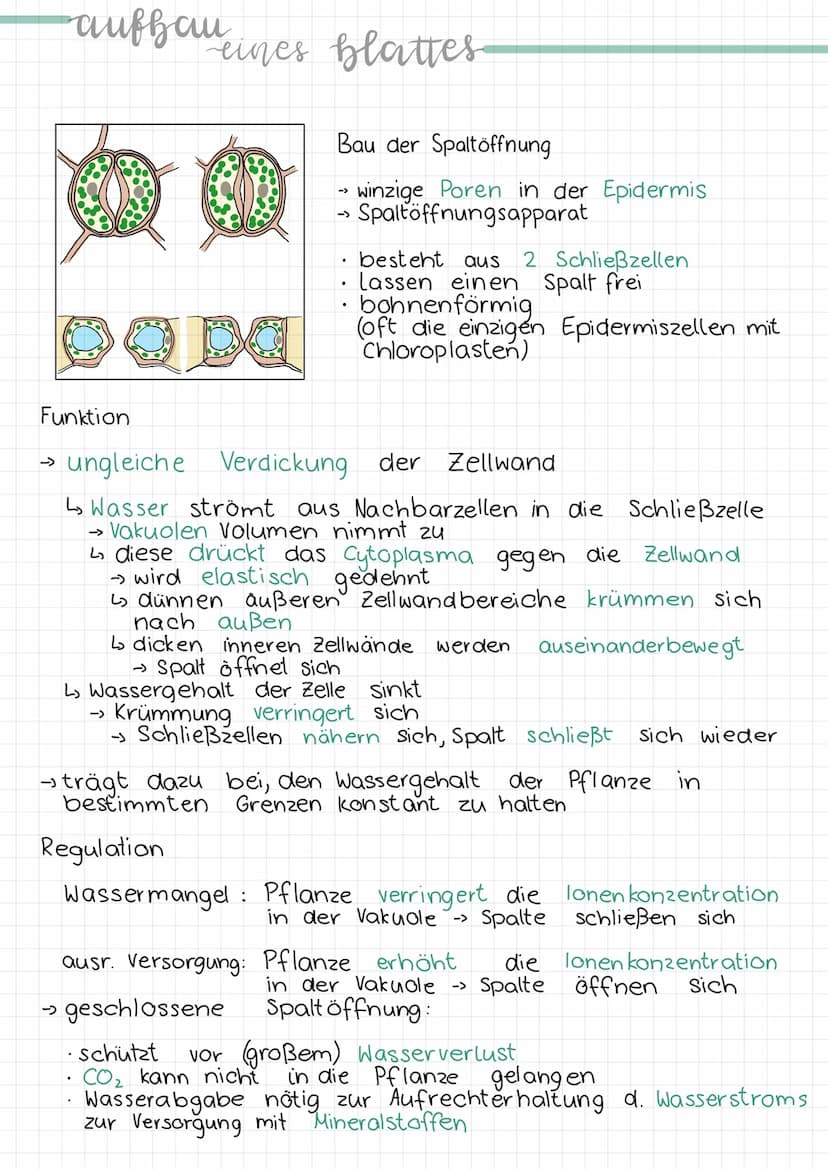 aufbau
eines blattes
Bau der Spaltöffnung
→ winzige Poren in der Epidermis
→ Spaltöffnungsapparat
· besteht aus 2 Schließzellen
· lassen einen Spalt frei
· bohnenförmig
(oft die einzigen Epidermiszellen mit
Chloroplasten)
Funktion
→ ungleiche Verdickung der Zellwand
↳ Wasser strömt aus Nachbarzellen in die Schließzelle
→ Vakuolen Volumen nimmt zu
↳ diese drückt das Cytoplasma gegen die Zellwand
→ wird elastisch gedehnt
↳ dünnen äußeren Zellwandbereiche krümmen sich
nach außen
↳ dicken inneren Zellwände werden auseinanderbewegt
→ Spalt öffnet sich
↳ Wassergehalt der Zelle sinkt
→ Krümmung verringert sich
→ Schließzellen nähern sich, Spalt schließt sich wieder
→ trägt dazu bei, den Wassergehalt der Pflanze in
bestimmten Grenzen konstant zu halten
Regulation
Wassermangel : Pflanze verringert die Ionenkonzentration
in der Vakuole -> Spalte schließen sich
ausr. Versorgung: Pflanze erhöht die Ionenkonzentration
in der Vakuole -> Spalte öffnen sich
→ geschlossene Spaltöffnung:
· schützt vor (großem) Wasserverlust
· CO₂ kann nicht in die Pflanze gelangen
· Wasserabgabe nötig zur Aufrechterhaltung d. Wasserstroms
zur Versorgung mit Mineralstoffen